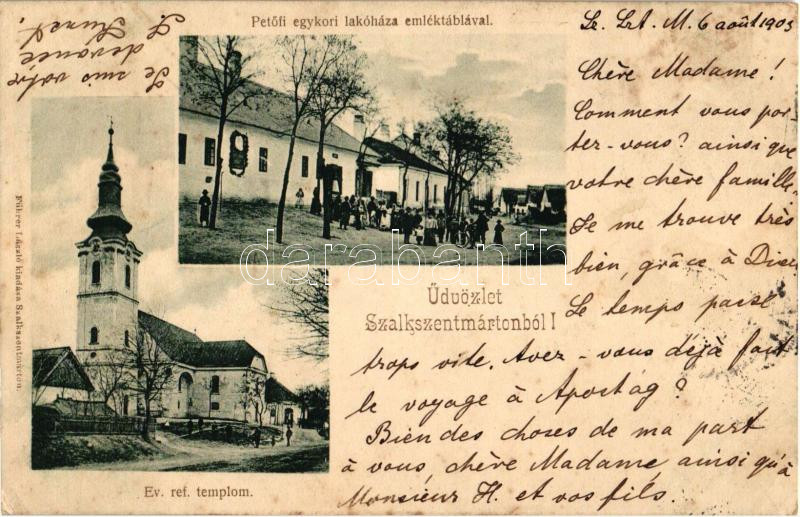 Petőfi egykori lakóháza emléktáblával.
Sz. Szt. M. 6 août 1903
Chère Madame!
Comment vous por-
tez-vous? ainsi que
votre chère famille.
Je me trouve très
bien, grâce à Dieu
Le temps passe
trops vite. Avez-vous déjà fait
le voyage à Apostag?
Bien des choses de ma part
à vous, chère Madame, ainsi qu'à
Monsieur H. et vos fils.
Je suis votre
devouée
Üdvözlet
Szalkszentmártonból!
Ev. ref. templom.
Führer László kiadása Szalkszentmárton.
darabanth